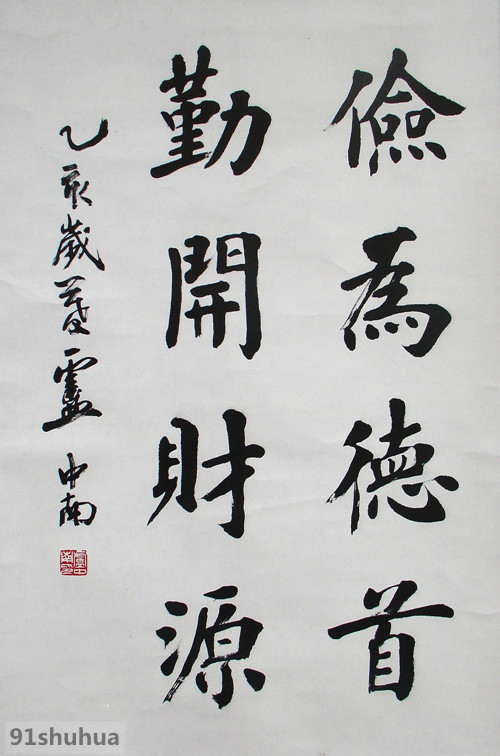 儉為德首
勤開財源
乙亥歲暮盧中南
91shuhua